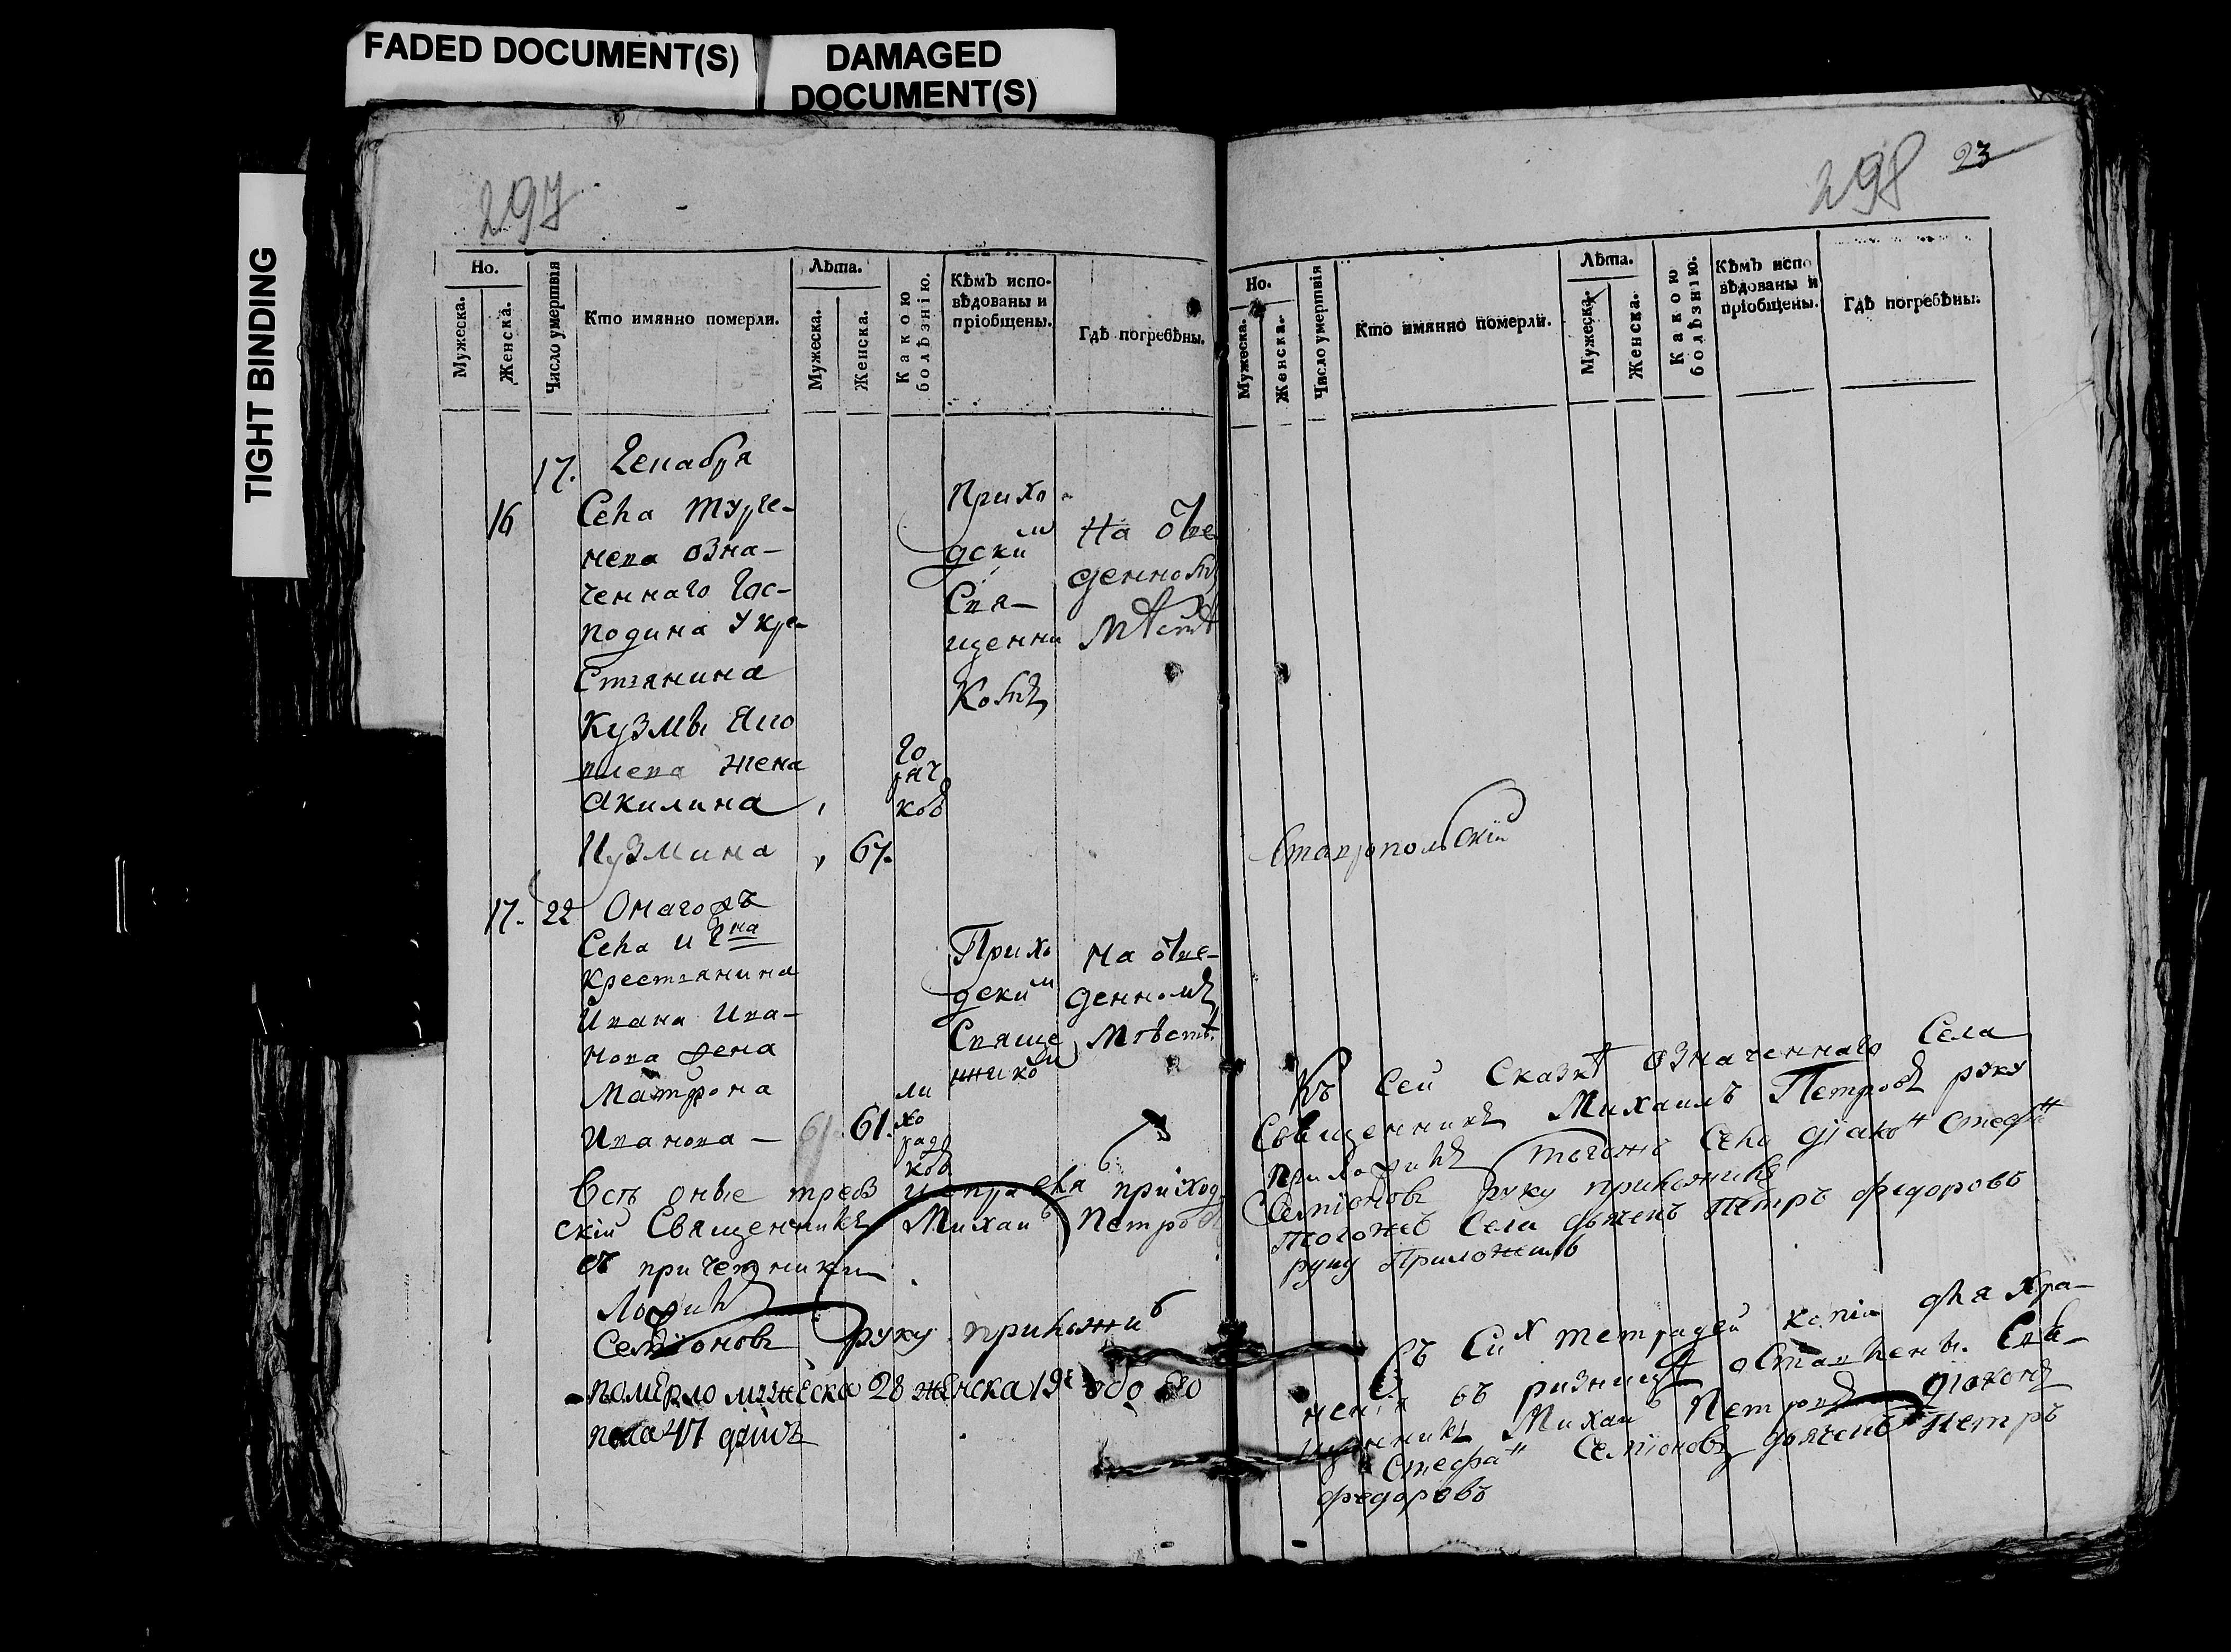 FADED DOCUMENT(S)
DAMAGED
DOCUMENT(S)
TIGHT BINDING
297
Но.
Мужеска.
Женска.
Число умертвія
Кто имянно померли.
Лѣта.
Мужеска.
Женска.
Какою
болѣзнію.
Кѣмъ испо-
вѣдованы и
пріобщены.
Гдѣ погребѣны.
17. Декабря
16
Села Турге-
нева озна-
ченнаго Гос-
подина У кре-
стьянина
Кузмы
жена
Акилина
Кузмина 67.
го
ряч
кою
Прихо
дским
Свя-
щенни
комъ
На отве
денномъ
мѣстѣ
17. 22 Онагожъ
Села и Гна
крестьянина
Ивана Ива-
нова жена
Матрона
Иванова - 61.
ли
хо
рад
кою
Прихо
дским
Свяще
нником
На отве-
денномъ
мѣстѣ
оные приход
скій Священникъ Михаил Петровъ
съ причетники
Семіоновъ руку приложилъ
померло мужеска 28 женска 19
пола 47 душъ
298 23
Но.
Мужеска.
Женска.
Число умертвія
Кто имянно померли.
Лѣта.
Мужеска.
Женска.
Какою
болѣзнію.
Кѣмъ испо
вѣдованы и
пріобщены.
Гдѣ погребѣны.
Ставропольскій
Къ сей Сказкѣ означеннаго Села
Священникъ Михаилъ Петровъ руку
приложилъ тогожъ Села діакон Стефан
Семіоновъ руку приложилъ
тогожъ Села дьячекъ Петръ федоровъ
руку Приложилъ
Съ Сих тетрадей копіи для хра-
ненія въ ризницѣ оставлены. Свя-
щенникъ Михаил Петровъ діаконъ
Стефан Семіоновъ дьячекъ Петръ
федоровъ